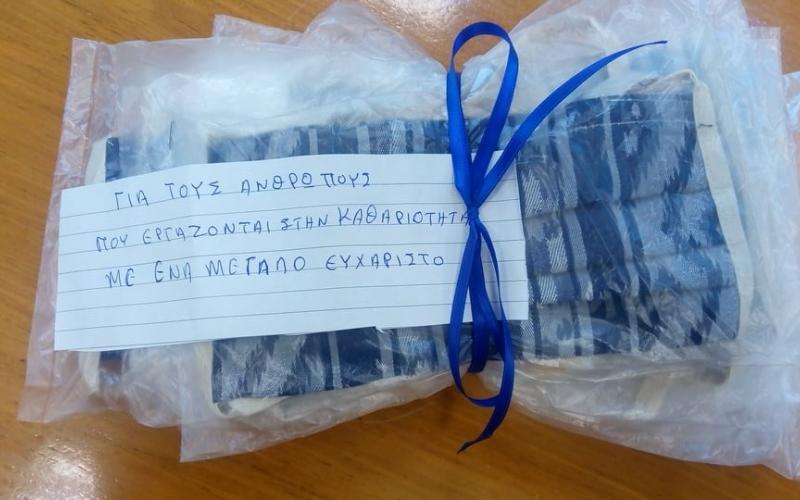 ΓΙΑ ΤΟΥΣ ΑΝΘΡΩΠΟΥΣ
ΠΟΥ ΕΡΓΑΖΟΝΤΑΙ ΣΤΗΝ ΚΑΘΑΡΙΟΤΗΤΑ
ΜΕ ΕΝΑ ΜΕΓΑΛΟ ΕΥΧΑΡΙΣΤΟ